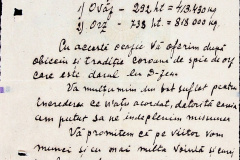 1) Ovăz - 292 ha = 413.430 kg
2) Orz - 738 ha. = 818.000 kg
Cu această ocazie Vă oferim după
obiceiu și tradiție "coroane" de spic de orz
care este darul lui D-zeu.
Vă mulțumim din tot suflet pentru
încrederea ce ne-ați acordat, datorită căreia
am putut să ne îndeplinim misiunea
Vă promitem că pe viitor vom
munci și cu mai multă voință și